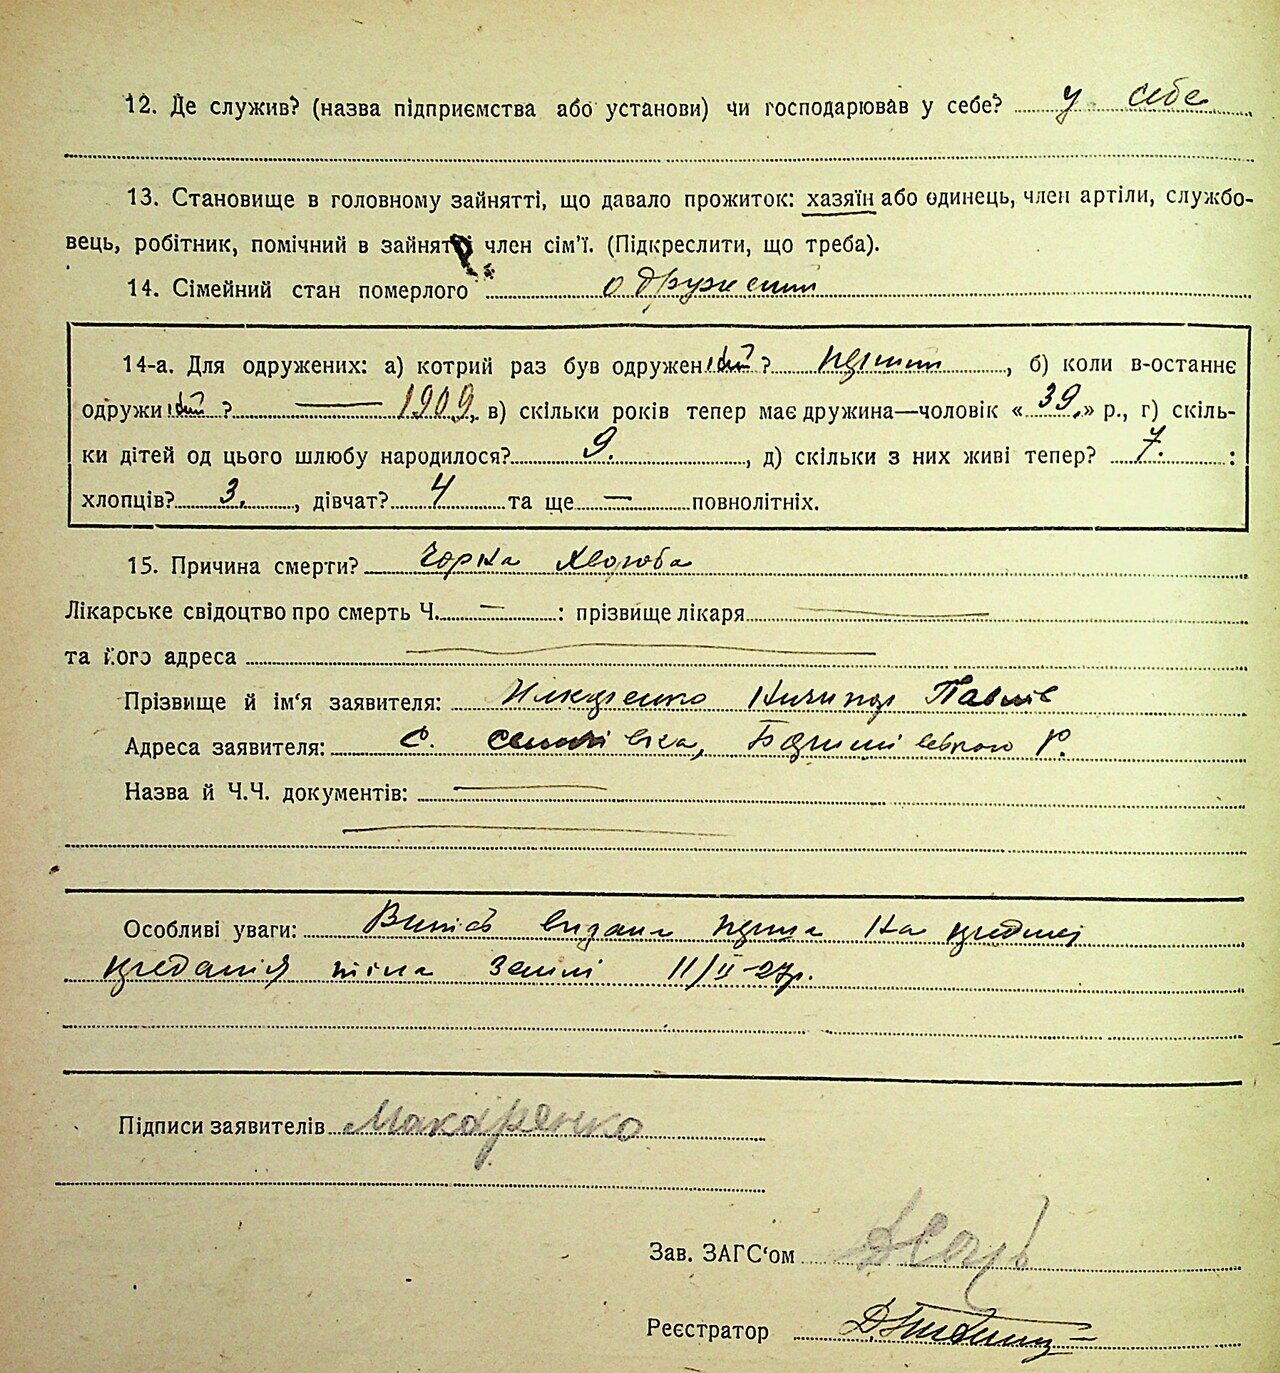 12. Де служив? (назва підприємства або установи) чи господарював у себе? у себе
13. Становище в головному зайнятті, що давало прожиток: хазяїн або одинець, член артіли, службо-
вець, робітник, помічний в зайнятті член сім'ї. (Підкреслити, що треба).
14. Сімейний стан померлого одружений
14-а. Для одружених: а) котрий раз був одружений? перший, б) коли в-останнє
одружи ? — 1909, в) скільки років тепер має дружина—чоловік «39.» р., г) скіль-
ки дітей од цього шлюбу народилося? 9., д) скільки з них живі тепер? 7. :
хлопців? 3., дівчат? 4 та ще — повнолітніх.
15. Причина смерти? Чорна хвороба
Лікарське свідоцтво про смерть Ч. — : прізвище лікаря —
та його адреса —
Прізвище й ім'я заявителя: Ничипор Павлів
Адреса заявителя: с. Р.
Назва й Ч.Ч. документів: —
Особливі уваги: Витяг видано на предмет
тіла землі 11/II-27р.
Підписи заявителів Макаренко
Зав. ЗАГС'ом
Реєстратор